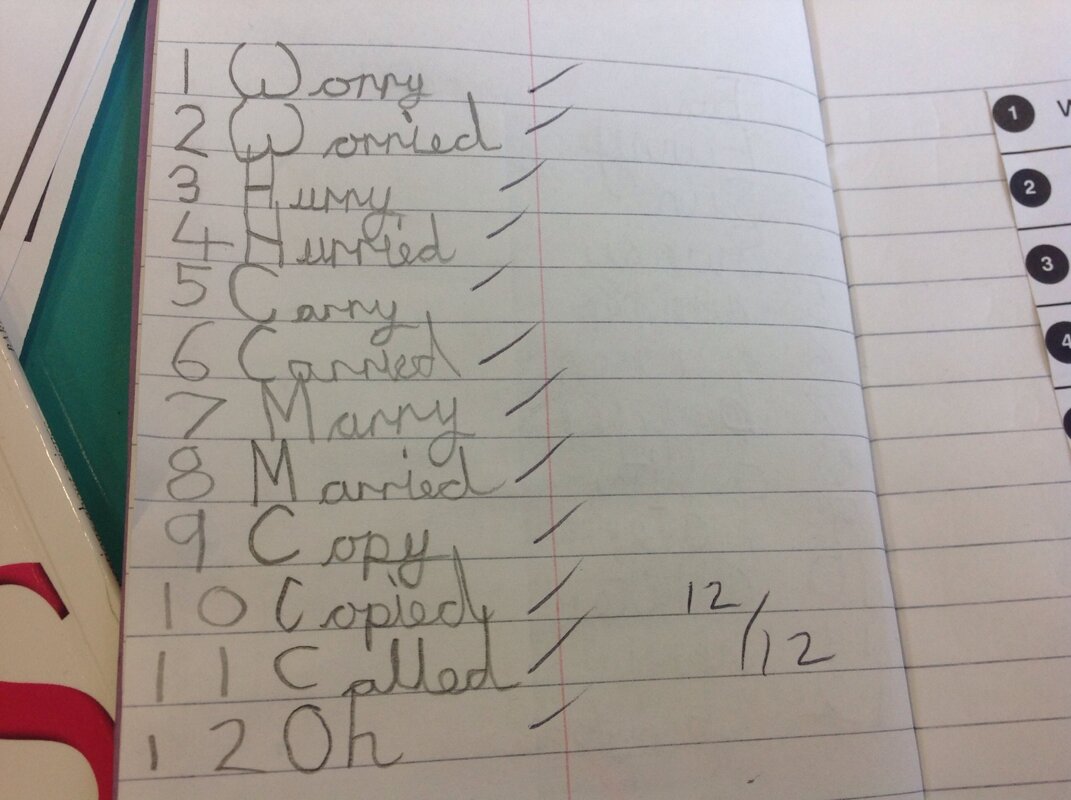 1 Worry
2 Worried
3 Hurry
4 Hurried
5 Carry
6 Carried
7 Marry
8 Married
9 Copy
10 Copied
11 Called
12 Oh
12/12
1
2
3
4